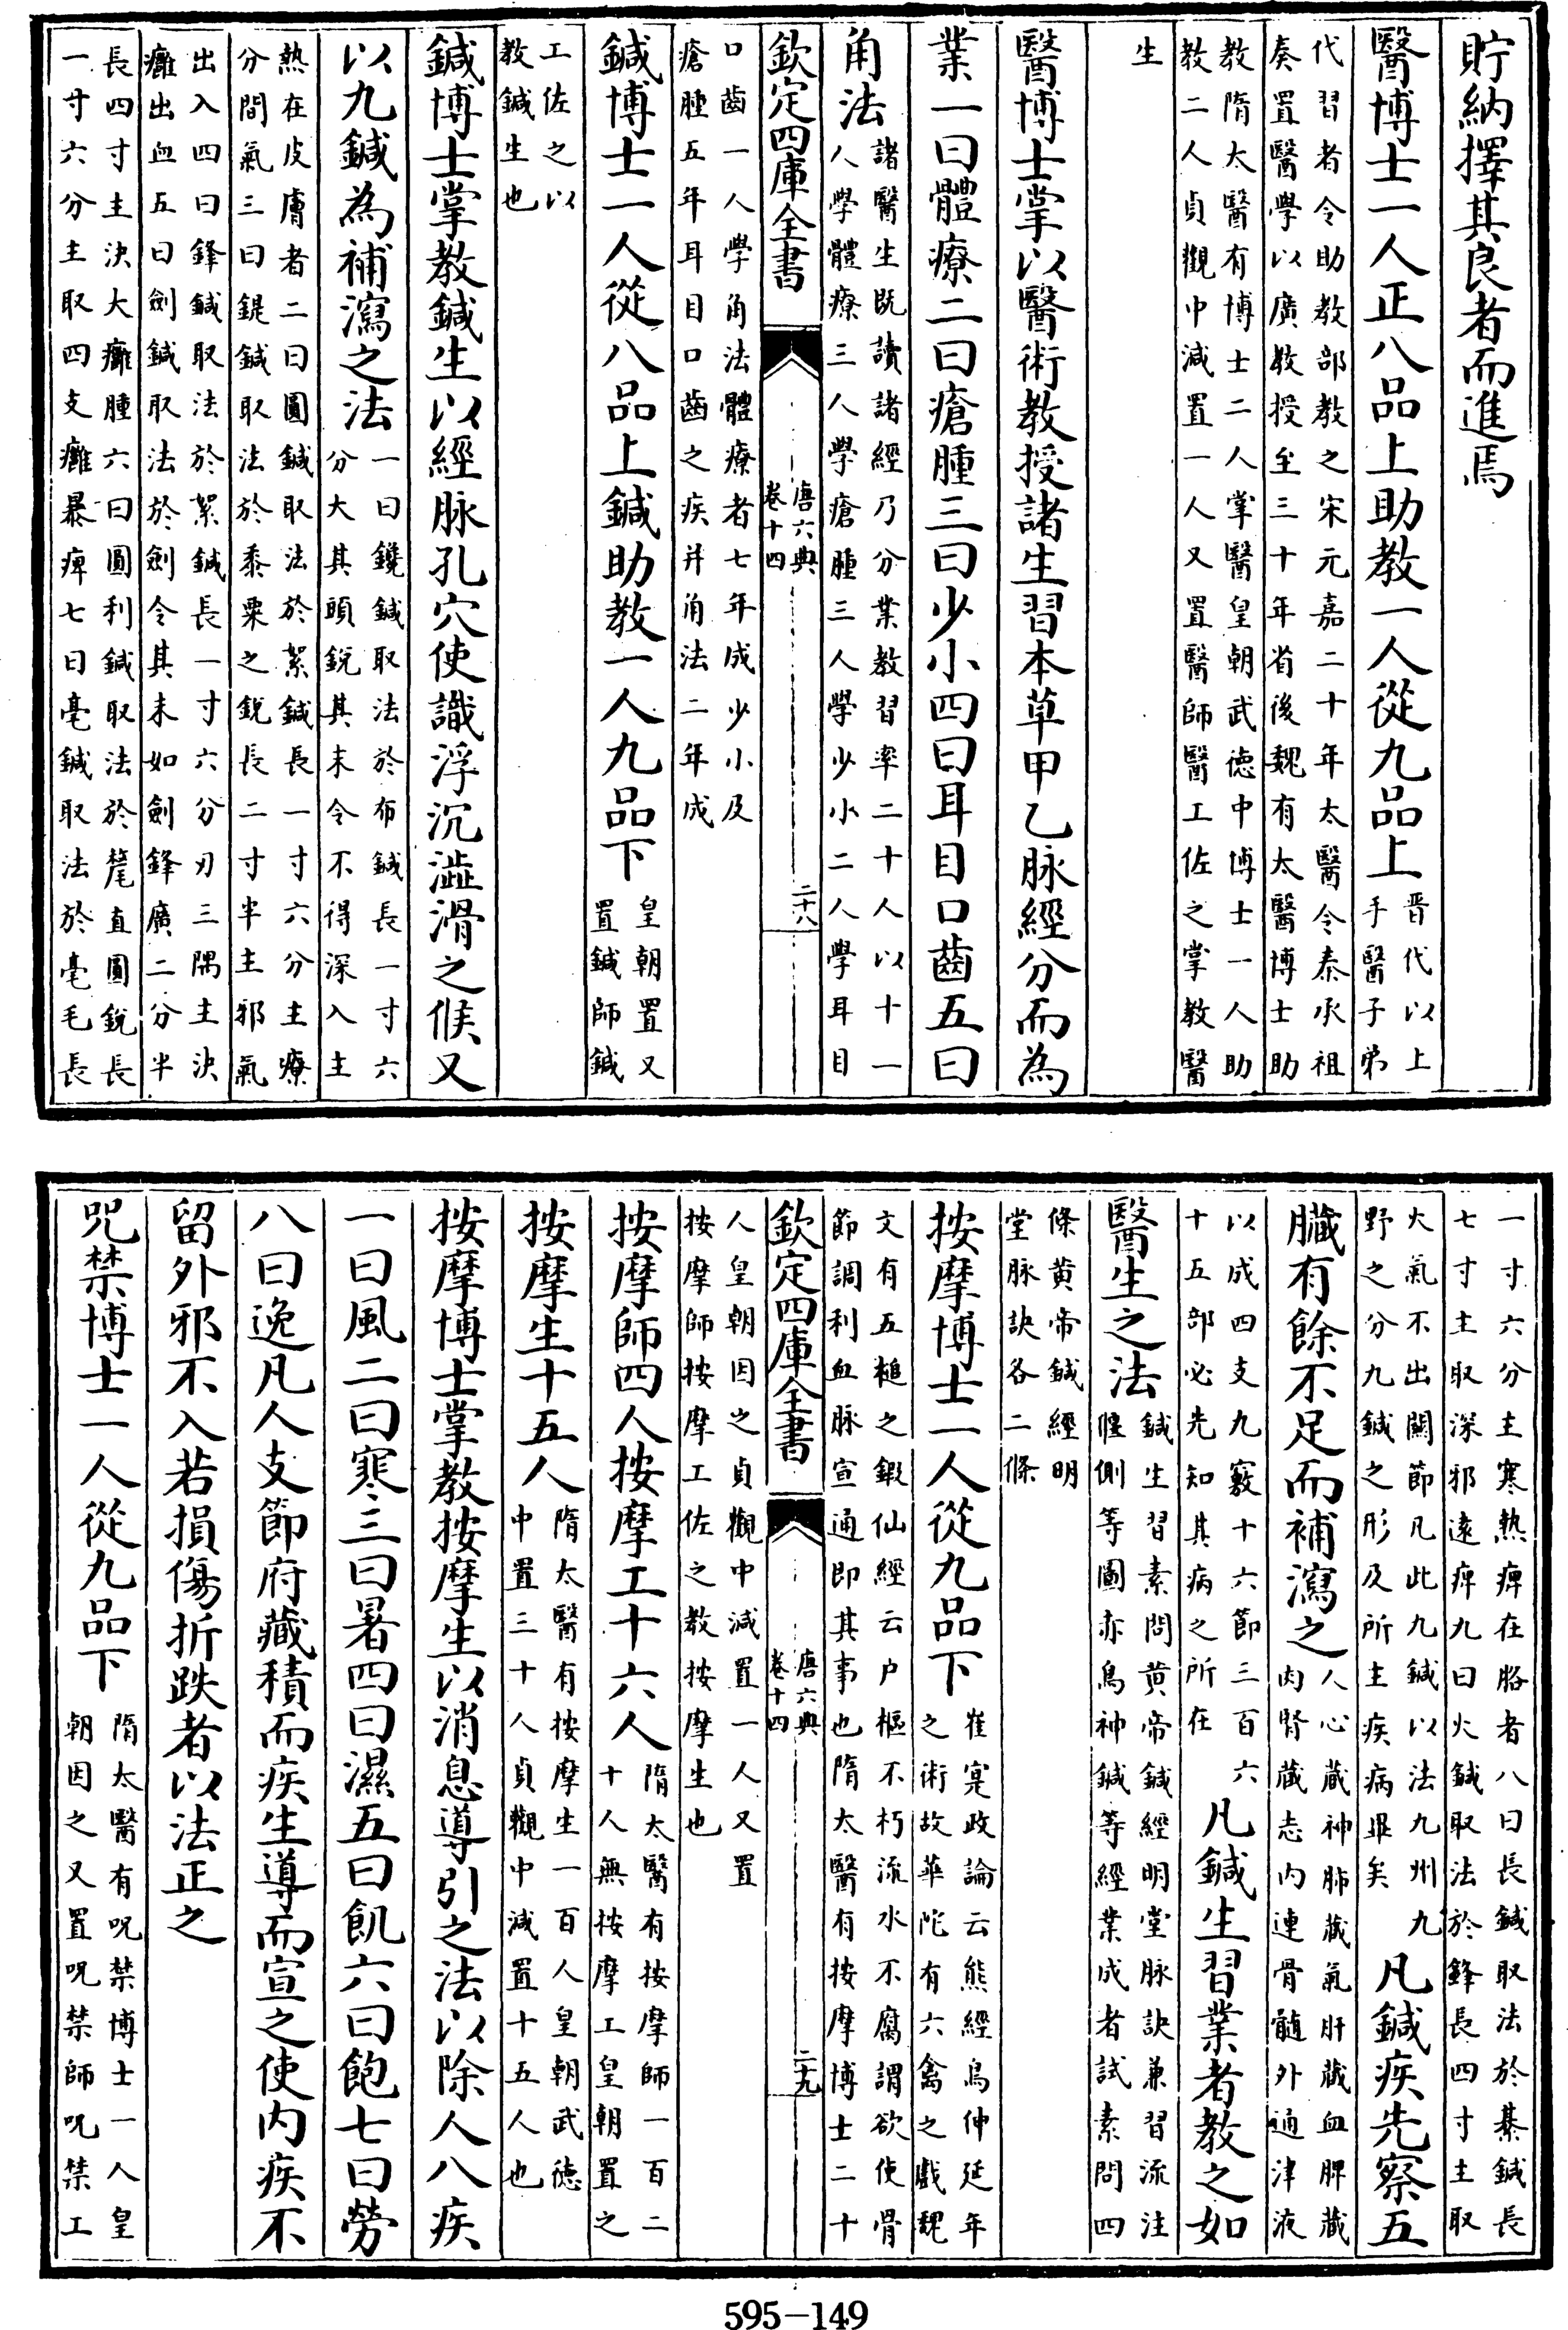 貯納擇其良者而進焉
醫博士一人正八品上助教一人從九品上晉代以上手醫子弟
代習者令助教部教之宋元嘉二十年太醫令秦承祖
奏置醫學以廣教授至三十年省後魏有太醫博士助
教隋太醫有博士二人掌醫皇朝武德中博士一人助
教二人貞觀中減置一人又置醫師醫工佐之掌教醫
生
醫博士掌以醫術教授諸生習本草甲乙脉經分而為
業一曰體療二曰瘡腫三曰少小四曰耳目口齒五曰
角法諸醫生既讀諸經乃分業教習率二十人以十一人學體療三人學瘡腫三人學少小二人學耳目
欽定四庫全書
唐六典
卷十四
二十八
口齒一人學角法體療者七年成少小及
瘡腫五年耳目口齒之疾并角法二年成
鍼博士一人從八品上鍼助教一人九品下皇朝置又置鍼師鍼
工佐之以
教鍼生也
鍼博士掌教鍼生以經脉孔穴使識浮沉澁滑之候又
以九鍼為補瀉之法一曰鑱鍼取法於布鍼長一寸六分大其頭銳其末令不得深入主
熱在皮膚者二曰圓鍼取法於絮鍼長一寸六分主療
分間氣三曰鍉鍼取法於黍粟之銳長二寸半主邪氣
出入四曰鋒鍼取法於絮鍼長一寸六分刃三隅主決
癰出血五曰劍鍼取法於劍令其末如劍鋒廣二分半
長四寸主決大癰腫六曰圓利鍼取法於氂直圓銳長
一寸六分主取四支癰暴痺七曰毫鍼取法於毫毛長
一寸六分主寒熱痺在胳者八曰長鍼取法於綦鍼長
七寸主取深邪遠痺九曰火鍼取法於鋒長四寸主取
火氣不出關節凡此九鍼以法九州九
野之分九鍼之形及所主疾病畢矣
凡鍼疾先察五
臟有餘不足而補瀉之人心藏神肺藏氣肝藏血脾藏肉腎藏志內連骨髓外通津液
以成四支九竅十六節三百六
十五部必先知其病之所在
凡鍼生習業者教之如
醫生之法鍼生習素問黄帝鍼經明堂脉訣兼習流注偃側等圖亦烏神鍼等經業成者試素問四
條黄帝鍼經明
堂脉訣各二條
按摩博士一人從九品下崔寔政論云熊經鳥伸延年之術故華陀有六禽之戲魏
文有五槌之鍛仙經云户樞不朽流水不腐謂欲使骨
節調利血脉宣通即其事也隋太醫有按摩博士二十
欽定四庫全書
唐六典
卷十四
二十九
人皇朝因之貞觀中減置一人又置
按摩師按摩工佐之教按摩生也
按摩師四人按摩工十六人隋太醫有按摩師一百二十人無按摩工皇朝置之
按摩生十五人隋太醫有按摩生一百人皇朝武德中置三十人貞觀中減置十五人也
按摩博士掌教按摩生以消息導引之法以除人八疾
一曰風二曰寒三曰暑四曰濕五曰飢六曰飽七曰勞
八曰逸凡人支節府藏積而疾生導而宣之使内疾不
留外邪不入若損傷折跌者以法正之
咒禁博士一人從九品下隋太醫有咒禁博士一人皇朝因之又置咒禁師咒禁工
595-149